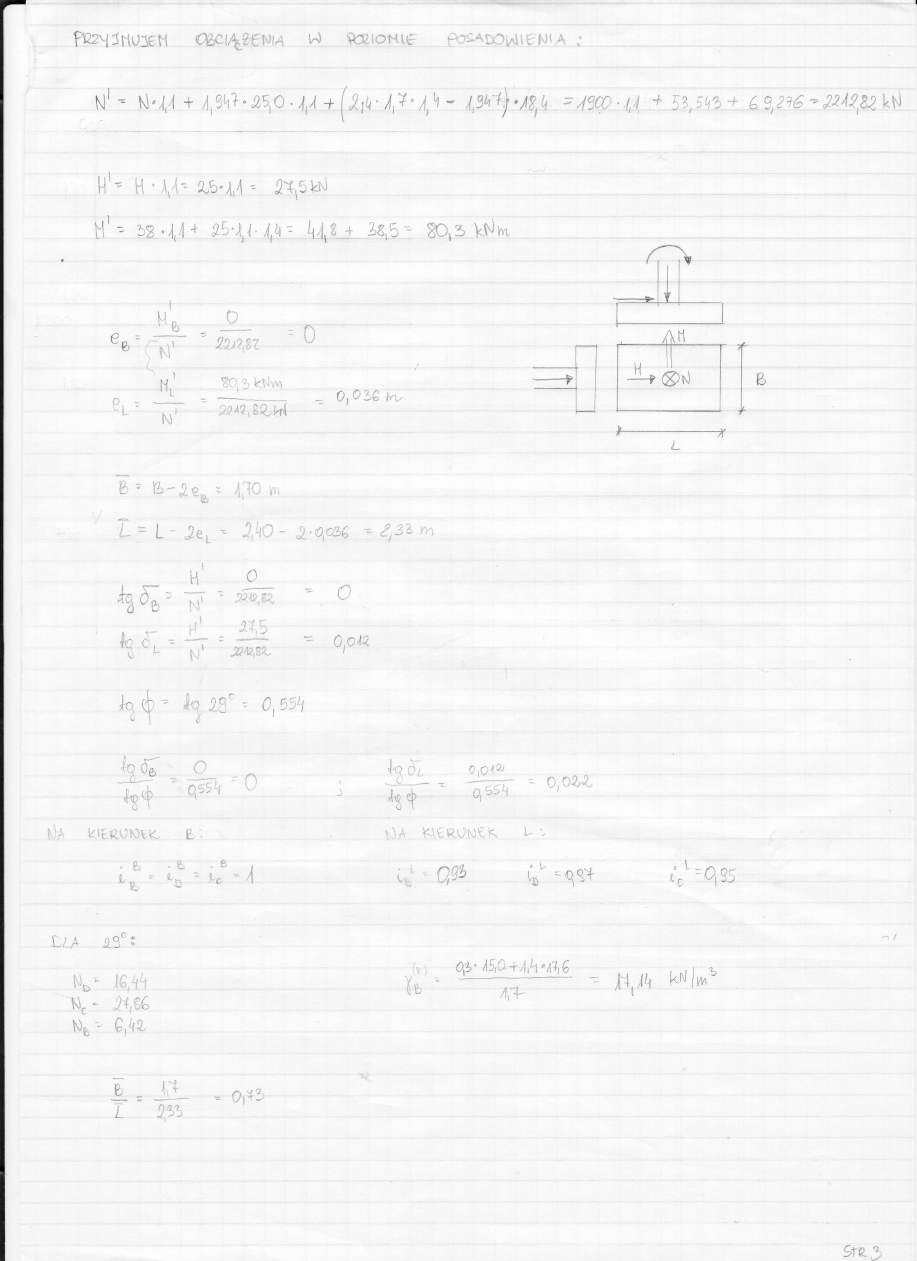 PRZYJMUJEM OBCIĄŻENIA W POZIOMIE POSADOWIENIA:
N' = N·1,1 + 1,947·25,0·1,1 + (2,4·1,7·1,4 - 1,947)·18,4 = 1900·1,1 + 53,543 + 69,276 = 2212,82 kN
H' = H·1,1 = 25·1,1 = 27,5 kN
M' = 38·1,1 + 25·1,1·1,4 = 41,8 + 38,5 = 80,3 kNm
e_B = M'_B / N' = 0 / 2212,82 = 0
e_L = M'_L / N' = 80,3 kNm / 2212,82 kN = 0,036 m
H
H
N
B
L
B̄ = B - 2e_B = 1,70 m
L̄ = L - 2e_L = 2,40 - 2·0,036 = 2,33 m
tg δ_B = H' / N' = 0 / 2212,82 = 0
tg δ_L = H' / N' = 27,5 / 2212,82 = 0,012
tg ϕ = tg 29° = 0,554
tg δ_B / tg ϕ = 0 / 0,554 = 0 ; tg δ_L / tg ϕ = 0,012 / 0,554 = 0,022
NA KIERUNEK B: NA KIERUNEK L:
i_B^B = i_D^B = i_C^B = 1 i_B^L = 0,93 i_D^L = 0,97 i_C^L = 0,95
DLA 29°:
N_D = 16,44
N_C = 27,86
N_B = 6,42
γ_B^(r) = 0,3·15,0 + 1,4·17,6 / 1,7 = 17,14 kN/m³
B̄ / L̄ = 1,7 / 2,33 = 0,73
STR 3